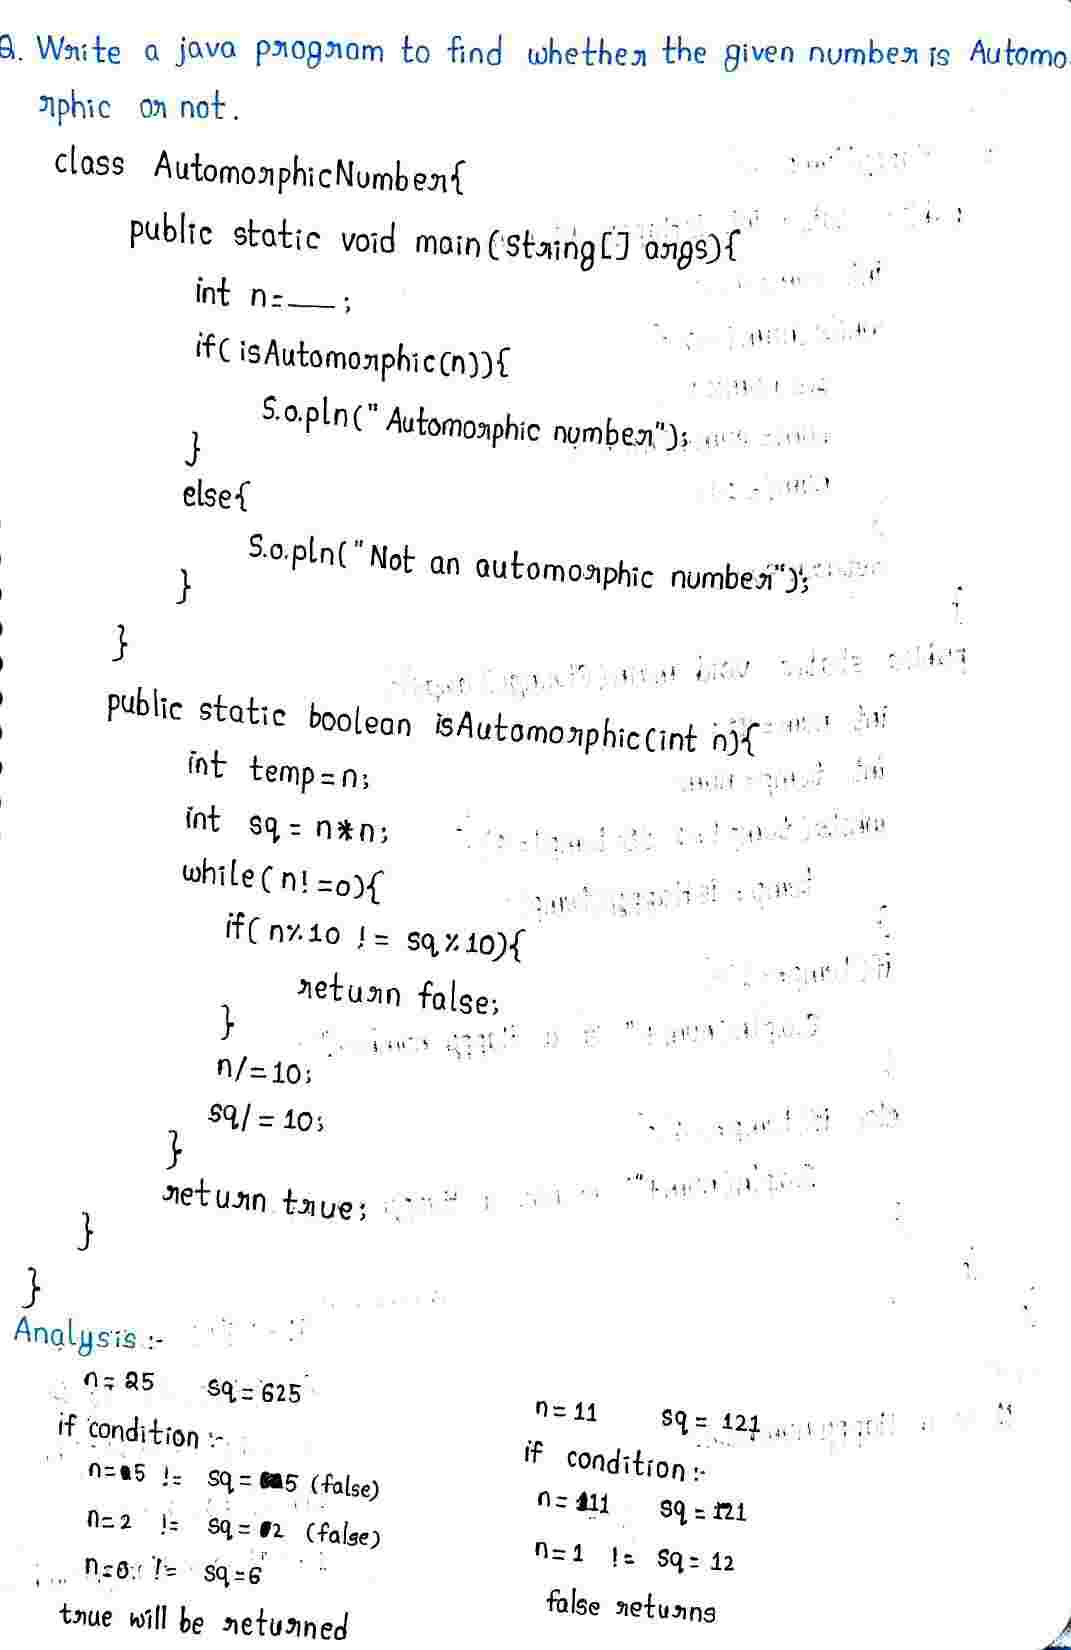 Q. Write a java program to find whether the given number is Automo
rphic or not.
class AutomorphicNumber{
public static void main(String[] args){
int n=___;
if(isAutomorphic(n)){
S.o.pln("Automorphic number");
}
else{
S.o.pln("Not an automorphic number");
}
}
public static boolean isAutomorphic(int n){
int temp=n;
int sq = n*n;
while(n!=0){
if(n%10 != sq%10){
return false;
}
n/=10;
sq/=10;
}
return true;
}
}
Analysis:-
n=25 sq=625
if condition:-
n=5 != sq=5 (false)
n=2 != sq=2 (false)
n=0 != sq=6
true will be returned
n=11 sq=121
if condition:-
n=11 sq=121
n=1 != sq=12
false returns